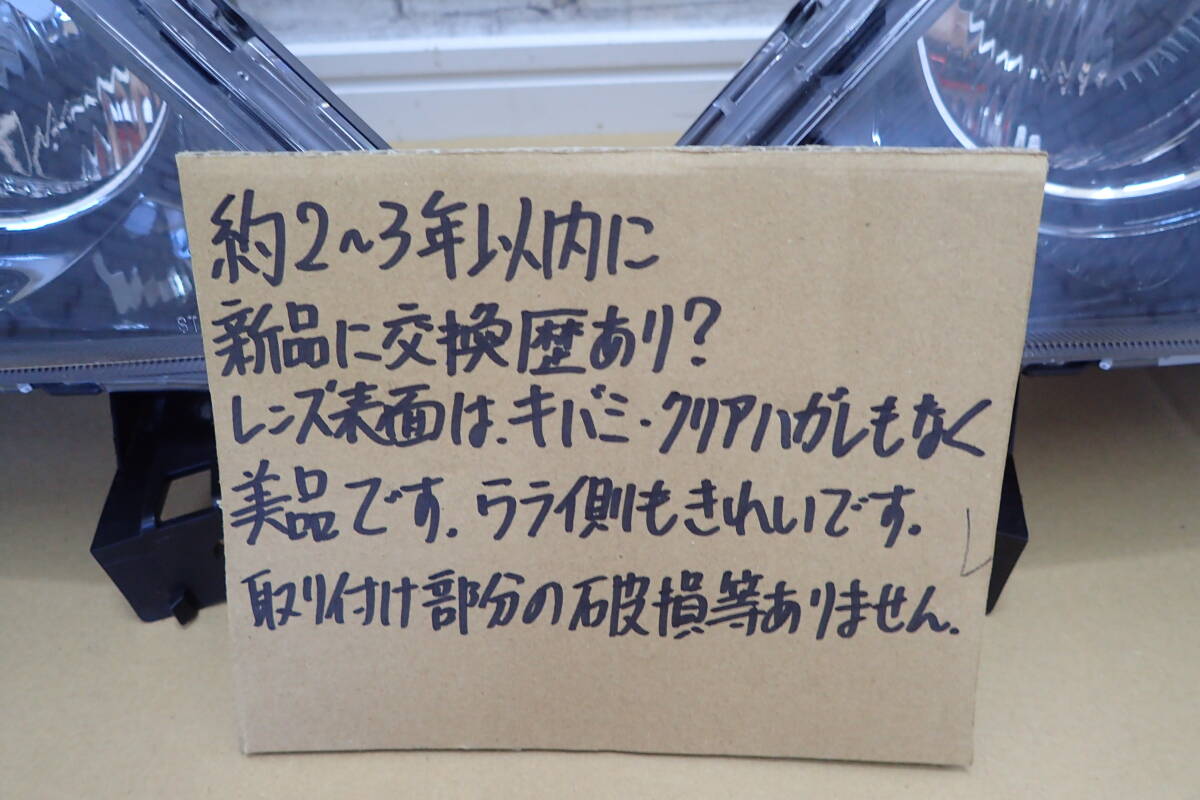 約2~3年以内に
新品に交換歴あり?
レンズ表面は、キバミ・クリアハガレもなく
美品です。ウライ側もきれいです。
取り付け部分の破損等ありません。
ST